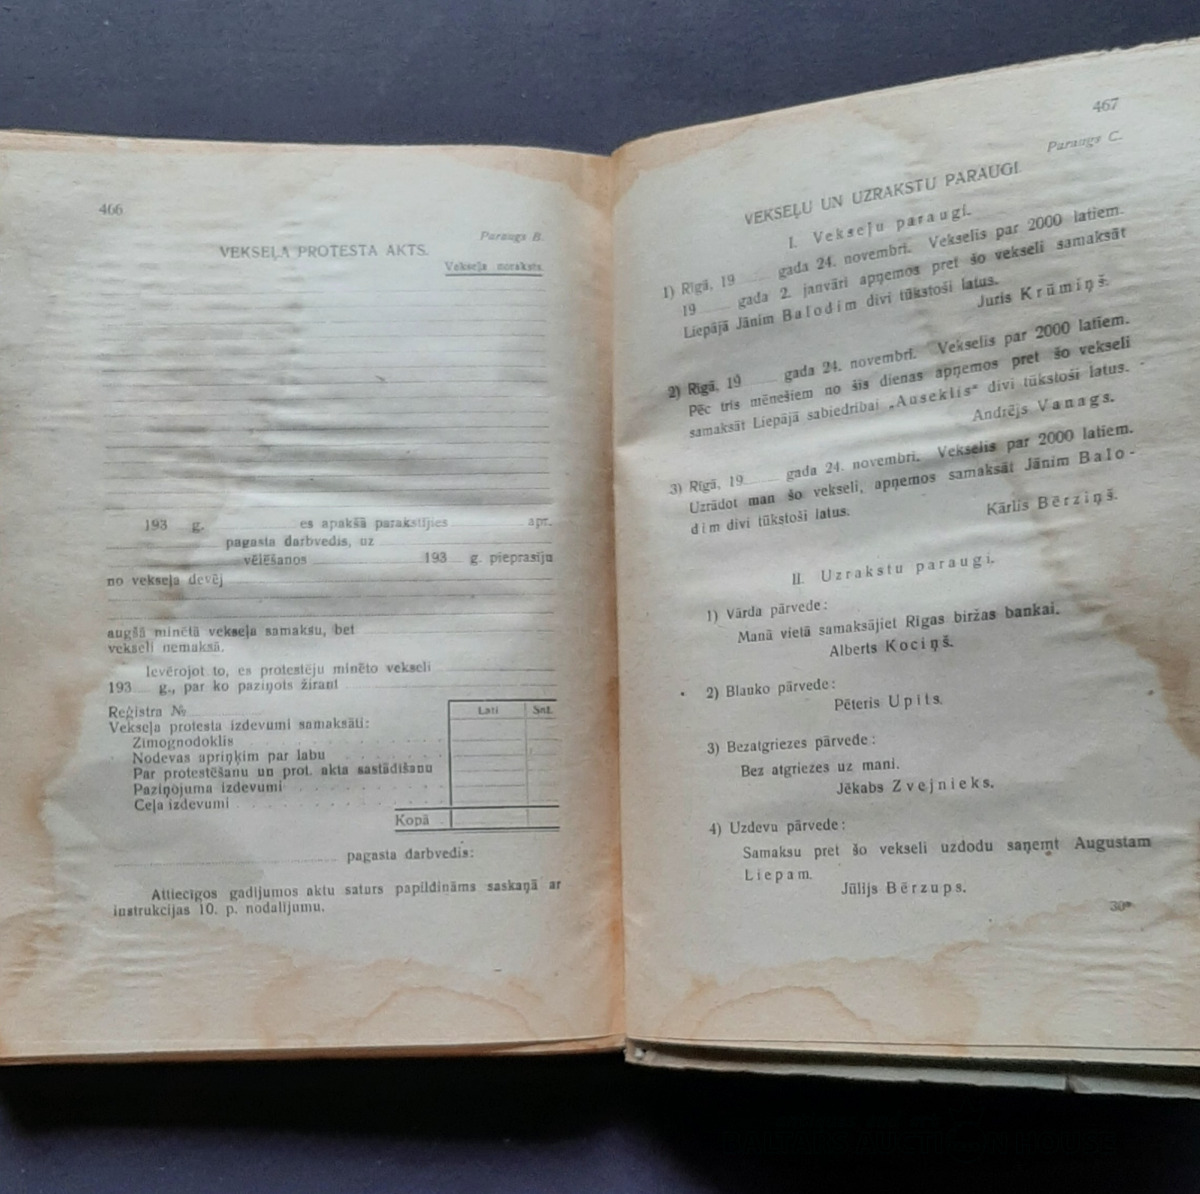 466
Paraugs B.
VEKSEĻA PROTESTA AKTS.
Vekseļa noraksts.
193 g. es apakšā parakstījies apr.
pagasta darbvedis, uz
vēlēšanos 193 g. pieprasīju
no vekseļa devēj
augšā minētā vekseļa samaksu, bet
vekseli nemaksā.
Ievērojot to, es protestēju minēto vekseli
193 g., par ko paziņots žirant
Reģistra №
Vekseļa protesta izdevumi samaksāti:
Lati Snt.
Zīmognodoklis
Nodevas apriņķim par labu
Par protestēšanu un prot. akta sastādīšanu
Paziņojuma izdevumi
Ceļa izdevumi
Kopā
pagasta darbvedis:
Attiecīgos gadījumos aktu saturs papildināms saskaņā ar
instrukcijas 10. p. nodalījumu.
467
Paraugs C.
VEKSEĻU UN UZRAKSTU PARAUGI.
I. Vekseļu paraugi.
1) Rīgā, 19 gada 24. novembrī. Vekselis par 2000 latiem.
19 gada 2. janvārī apņemos pret šo vekseli samaksāt
Liepājā Jānim Balodim divi tūkstoši latus.
Juris Krūmiņš.
2) Rīgā, 19 gada 24. novembrī. Vekselis par 2000 latiem.
Pēc trīs mēnešiem no šīs dienas apņemos pret šo vekseli
samaksāt Liepājā sabiedrībai „Auseklis“ divi tūkstoši latus.
Andrējs Vanags.
3) Rīgā, 19 gada 24. novembrī. Vekselis par 2000 latiem.
Uzrādot man šo vekseli, apņemos samaksāt Jānim Balo-
dim divi tūkstoši latus.
Kārlis Bērziņš.
II. Uzrakstu paraugi.
1) Vārda pārvede:
Manā vietā samaksājiet Rīgas biržas bankai.
Alberts Kociņš.
2) Blanko pārvede:
Pēteris Upīts.
3) Bezatgriezes pārvede:
Bez atgriezes uz mani.
Jēkabs Zvejnieks.
4) Uzdevu pārvede:
Samaksu pret šo vekseli uzdodu saņemt Augustam
Liepam.
Jūlijs Bērzups.
30*